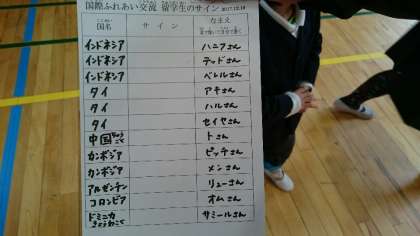 国際ふれあい交流 留学生のサイン 2017.12.19
国名 サイン なまえ
インドネシア ハニフさん
インドネシア テッドさん
インドネシア ベレルさん
タイ アキさん
タイ ハルさん
タイ セイヤさん
中国 トさん
カンボジア ピッチさん
カンボジア メンさん
アルゼンチン リューさん
コロンビア オムさん
ドミニカきょうわこく サミールさん